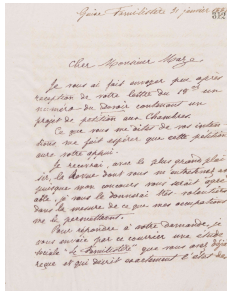 Guise Familistère 21 janvier
Cher Monsieur Maze
Je vous ai fait envoyer peu après
réception de votre lettre du 12 un
numéro du devoir contenant un
projet de pétition aux Chambres.
Ce que vous me dites de vos inten
tions me fait espérer que cette pétition
aura votre appui.
Je recevrai, avec le plus grand plai
sir, la Revue dont vous m'entretenez et
puisque mon concours vous serait agré
able, je vous le donnerai très volontiers
dans la mesure de ce que mes occupations
me le permettront.
Pour répondre à votre demande, je
vous envoie par ce courrier une étude
sociale "Le Familistère" que vous avez déjà
reçue et qui décrit exactement l'état des